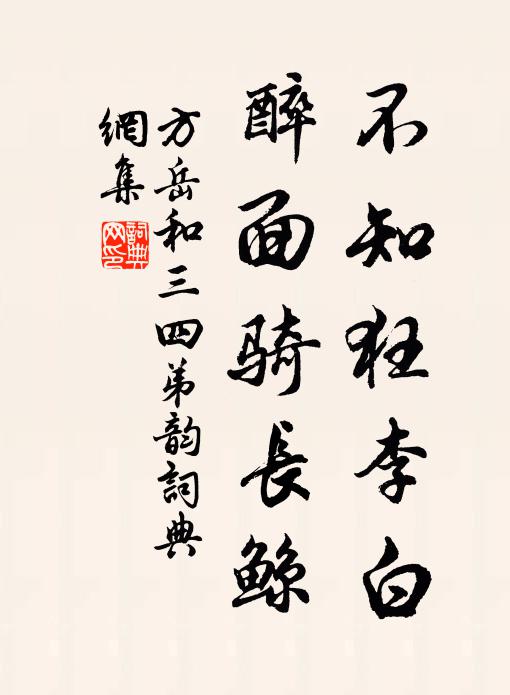 不知狂李白
醉面骑長鲸
方岳和三四弟韵詞典
網集
詞典
网印